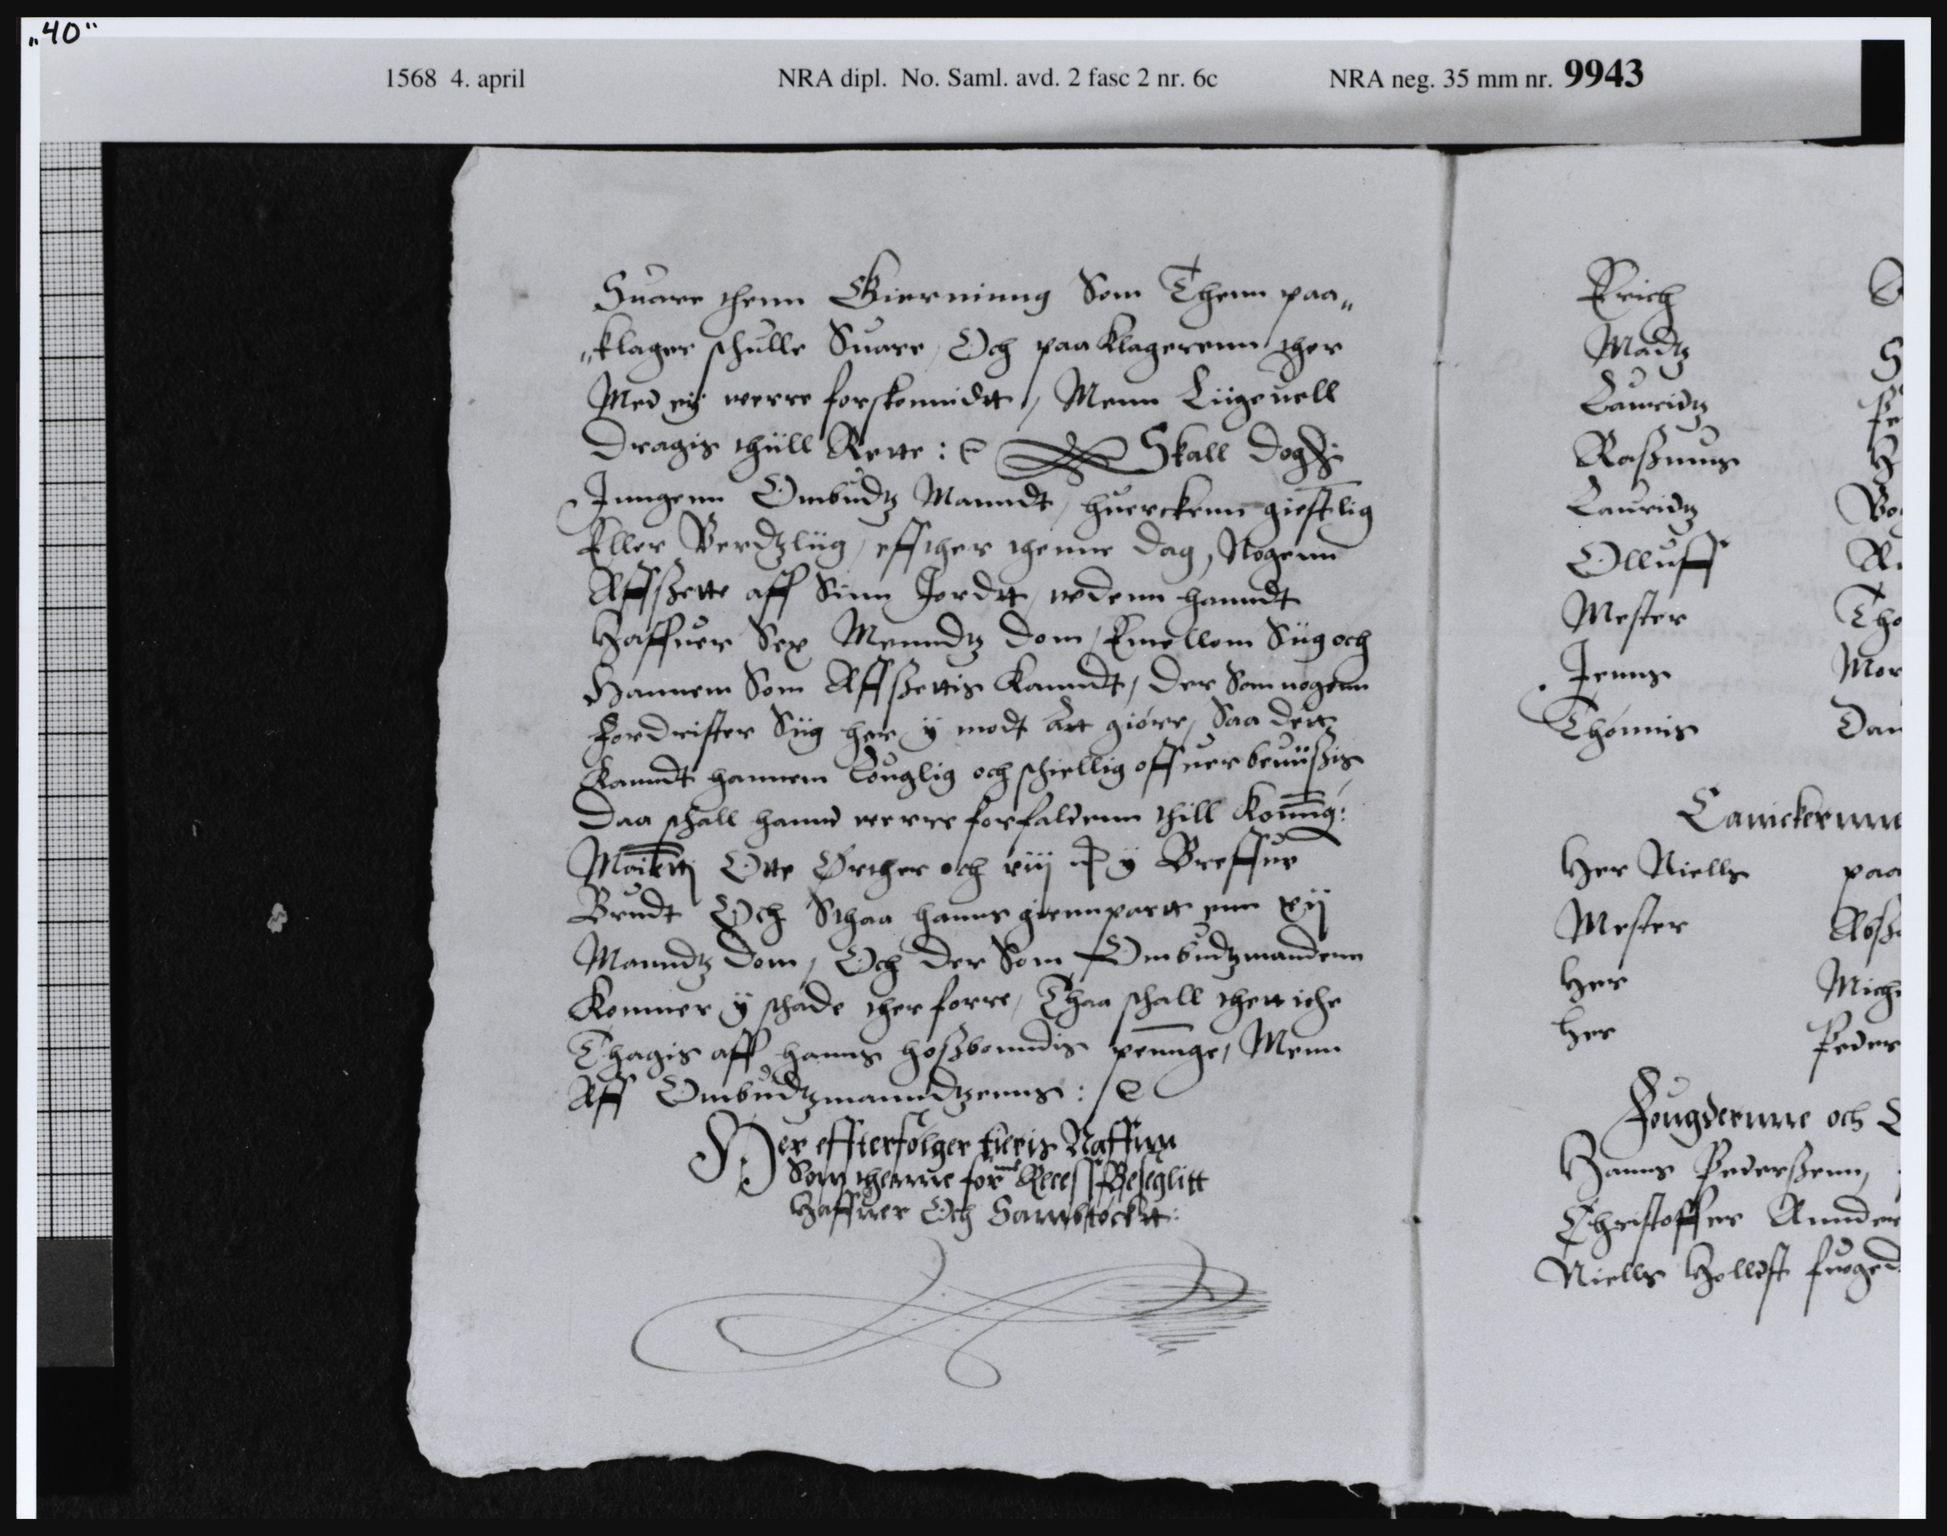 „40“
1568 4. april NRA dipl. No. Saml. avd. 2 fasc 2 nr. 6c NRA neg. 35 mm nr. 9943
Suare thenn Gierninng Som Thenn paa„
„klager schulle Suare, Och paaklagerenn ther
Med eij werre forskonnidtt, Menn Liigeuell
Dragis thiill Rette :
Skall dog
Inngenn Ombudtz Manndt, huerckenn giestlig
Eller Verdtzliig, effther thenne dag, Nogenn
Affßette aff Sinn Jordtt, wdenn hanndt
Haffuer Sex Menndtz dom, Emellom Siig och
Hannem Som Affßettis kanndt, der Som nogenn
Fordrister Siig her ij modt Att giöre, Saa dett
Kanndt hannem louglig och schiellig offuerbeuiißis
Daa schall hannd werre forfaldenn thill Konng:
Maiestt Otte Örther och xiij ij Breffue
Brudt Och Sthaa hanns giennpartt enn xij
Manndtz Dom, Och der Som Ombudtzmandenn
Kommer ij schade therforre, Thaa schall thett iche
Thagis aff hanns hoßbonndis pennge, Menn
Aff Ombudtzmanndtzenns :
Her effterfölger tieris Naffnn
Som thenne for ne Recess Beseglitt
Haffuer Och Sambtöcktt :
Erich
Madtz
Lauridtz
Raßmus
Lauridtz
Olluff
Mester Tho
Jenns Mor
Thönnis Dan
Canickernne
Her Niells paa
Mester Abß
Her Mich
Her Peder
Fougdernne och
Hanns Pederßenn,
Christoffer Annder
Niells Hollst fuoged